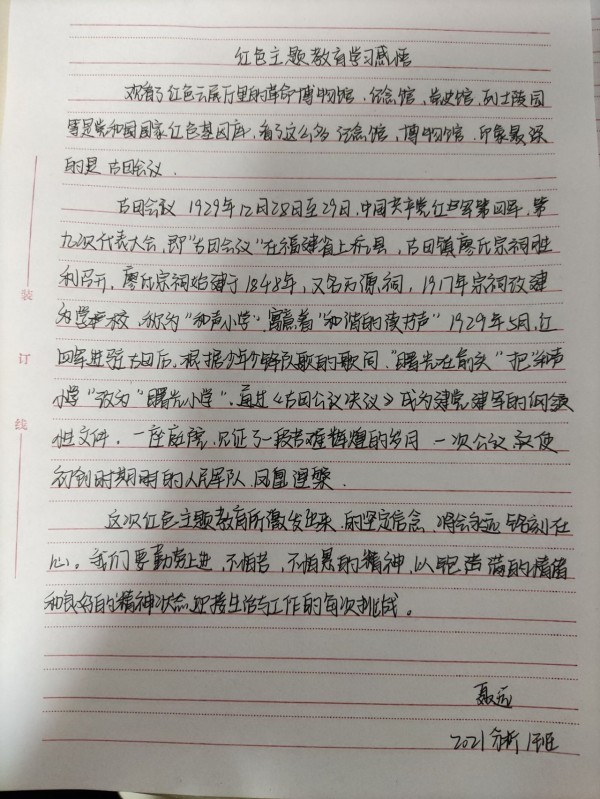 红色主题教育学习感悟
观看了红色云展厅里的革命博物馆、纪念馆、党史馆、烈士陵园
等是党和国国家红色基因库，看了这么多纪念馆，博物馆，印象最深
的是 古田会议.
古田会议 1929年12月28日至29日，中国共产党红四军第四军，第
九次代表大会，即"古田会议"在福建省上杭县，古田镇廖氏宗祠胜
利召开，廖氏宗祠始建于1848年，又名万源祠，1917年宗祠改建
为学校，称为"和声小学"，寓意着"和谐的读书声"1929年5月，红
四军进驻古田后，根据少年先锋队歌的歌词，"曙光在前头"把"和声
小学"改为"曙光小学"。通过《古田会议决议》成为建党建军的纲领
性文件，一座庭院，见证了一段苦难辉煌的岁月 一次会议 致使
初创时期的人民军队，凤凰涅槃.
这次红色主题教育所激发出来，的坚定信念，将会永远铭刻在
心。我们要勤劳上进，不怕苦，不怕累的精神，以饱满的情绪
和良好的精神状态迎接生活与工作的每次挑战。
聂远
2021分析1班
装
订
线